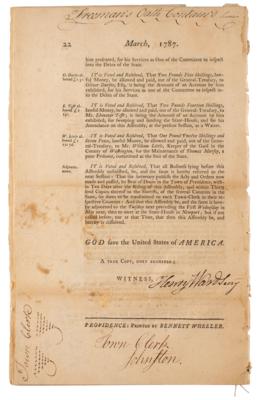 Freeman's Oath Contain'd
22 March, 1787.
him presented, for his Services as One of the Committee to inspect
into the Debts of the State.
IT is Voted and Resolved, That Two Pounds Five Shillings, law-
ful Money, be allowed and paid, out of the General-Treasury, to
Oliver Durfee, Esq; it being the Amount of an Account by him
exhibited, for his Services as one of the Committee to inspect in-
to the Debts of the State.
IT is Voted and Resolved, That Two Pounds Fourteen Shillings,
lawful Money, be allowed and paid, out of the General-Treasury, to
Mr. Ebenezer Tifft; it being the Amount of an Account by him
exhibited, for sweeping and sanding the State-House, and for his
Attendance on this Assembly, at the present Session, as a Waiter.
IT is Voted and Resolved, That One Pound Twelve Shillings and
Seven Pence, lawful Money, be allowed and paid, out of the Gene-
ral-Treasury, to Mr. William Lewis, Keeper of the Gaol in the
County of Washington, for the Maintenance of Thomas
poor Prisoner, committed at the Suit of the State.
IT is Voted and Resolved, That all Business lying before this
Assembly unfinished, be, and the same is hereby referred to the
next Session: That the Secretary publish the Acts and Orders now
made and passed, by Beat of Drum in the Town of Providence, with-
in Ten Days after the Rising of this Assembly, and within Thirty
send Copies thereof to the Sheriffs, of the several Counties in the
State, by them to be transmitted to each Town-Clerk in their re-
spective Counties: And that this Assembly be, and the same is here-
by adjourned to the Tuesday next preceding the First Wednesday in
May next, then to meet at the State-House in Newport; but if not
called before, nor at that Time, that then this Assembly be, and
hereby is dissolved.
GOD save the United States of AMERICA.
A TRUE COPY, DULY EXAMINED;
WITNESS, Henry Ward Secry
PROVIDENCE: PRINTED BY BENNETT WHEELER.
Town Clerk
Johnston
Town Clerk